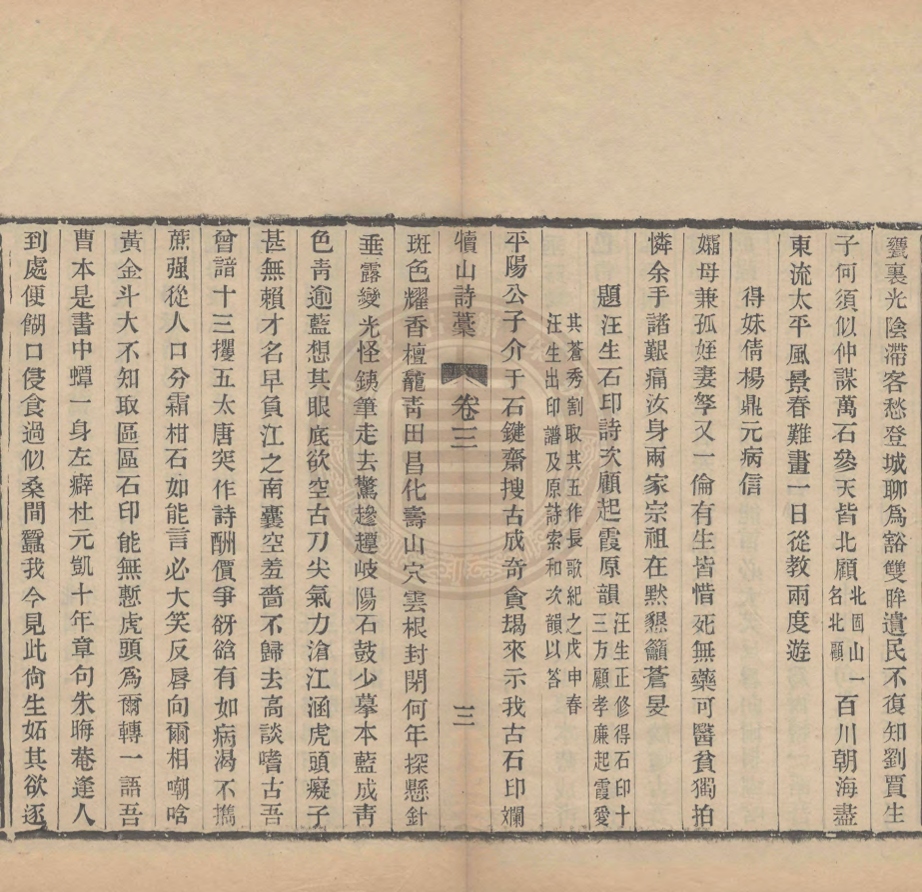 甕裏光陰滯客愁登城聊爲豁雙眸遺民不復知劉賈生
子何須似仲謀萬石參天皆北顧北固山一名北顧百川朝海盡
東流太平風景春難畫一日從教兩度遊
得妹倩楊鼎元病信
孀母兼孤姪妻孥又一倫有生皆惜死無藥可醫貧獨拍
憐余手諸艱痛汝身兩家宗祖在默懇籲蒼旻
題汪生石印詩次顧起霞原韻汪生正修得石印十三方顧孝廉起霞愛
其蒼秀割取其五作長歌紀之戊申春
汪生出印譜及原詩索和次韻以答
平陽公子介于石鍵齋搜古成奇貪朅來示我古石印斕
犢山詩藁
卷三
三
斑色耀香檀龕靑田昌化壽山穴雲根封閉何年探懸針
垂露變光怪銕筆走去驚趁趯岐陽石鼓少摹本藍成靑
色靑逾藍想其眼底欲空古刀尖氣力滄江涵虎頭癡子
甚無賴才名早負江之南囊空羞啬不歸去高談嗜古吾
曾諳十三攫五太唐突作詩酬價爭谺谽有如病渴不擕
蔗强從人口分霜柑石如能言必大笑反唇向爾相嘲唅
黃金斗大不知取區區石印能無慙虎頭爲爾轉一語吾
曹本是書中蟫一身左癖杜元凱十年章句朱晦菴逢人
到處便餬口侵食過似桑間蠶我今見此尙生妬其欲逐